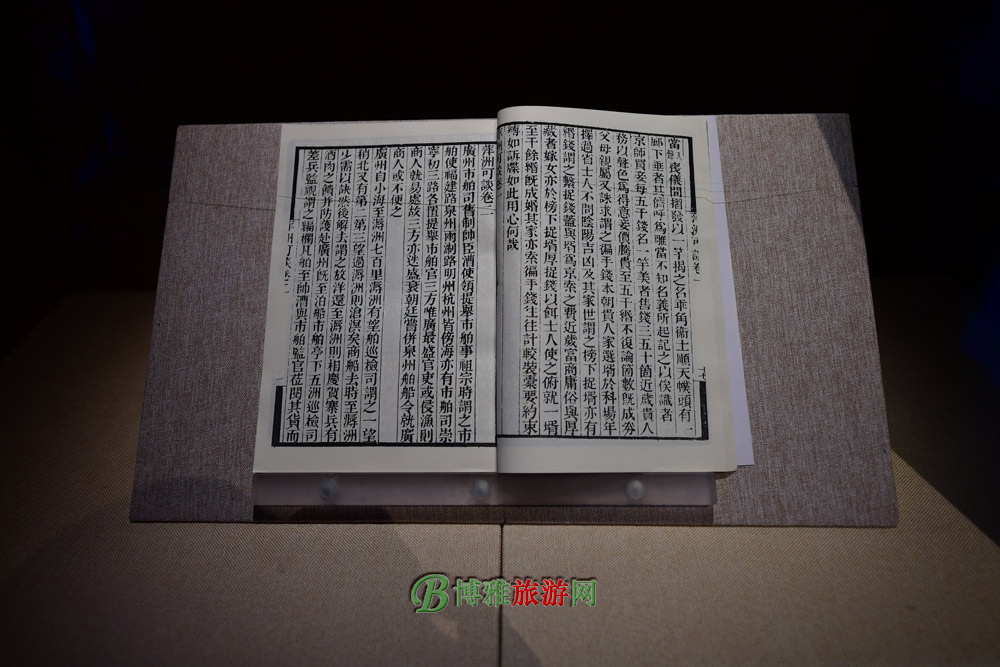 喪儀間摺發以一竿揭之名乖角衞士順天幞頭有一
下垂者其儕呼爲雕當不知名義所起記之以俟識者
京師買妾每五千錢名一竿美者售錢三五十箇近歲貴人
務以聲色爲得意妾價騰貴至五十緡不復論箇數旣成券
父母親屬又誅求謂之徧手錢本朝貴人家選壻於科場年
擇過省士人不問陰陽吉凶及其家世謂之榜下捉壻亦有
緡錢謂之繫捉錢蓋與壻爲京索之費近歲富商庸俗與厚
藏者嫁女亦於榜下捉壻厚捉錢以餌士人使之俯就一壻
至千餘緡旣成婚其家亦索徧手錢往往計較裝橐要約束
縛如訴牒如此用心何哉
萍洲可談卷二
廣州市舶司舊制帥臣漕使領提舉市舶事祖宗時謂之市
舶使福建路泉州兩浙路明州杭州皆傍海亦有市舶司崇
寧初三路各置提舉市舶官三方唯廣最盛官吏或侵漁則
商人就易處故三方亦迭盛衰朝廷嘗併泉州舶船令就廣
商人或不便之
廣州自小海至溽洲七百里溽洲有望舶巡檢司謂之一望
稍北又有第二第三望過溽洲則滄溟矣商船去時至溽洲
少需以訣然後解去謂之放洋還至溽洲則相慶賀寨兵有
酒肉之饋并防護赴廣州旣至泊船市舶亭下五洲巡檢司
差兵監視謂之編欄凡舶至帥漕與市舶監官莅閱其貨而
博雅旅游网